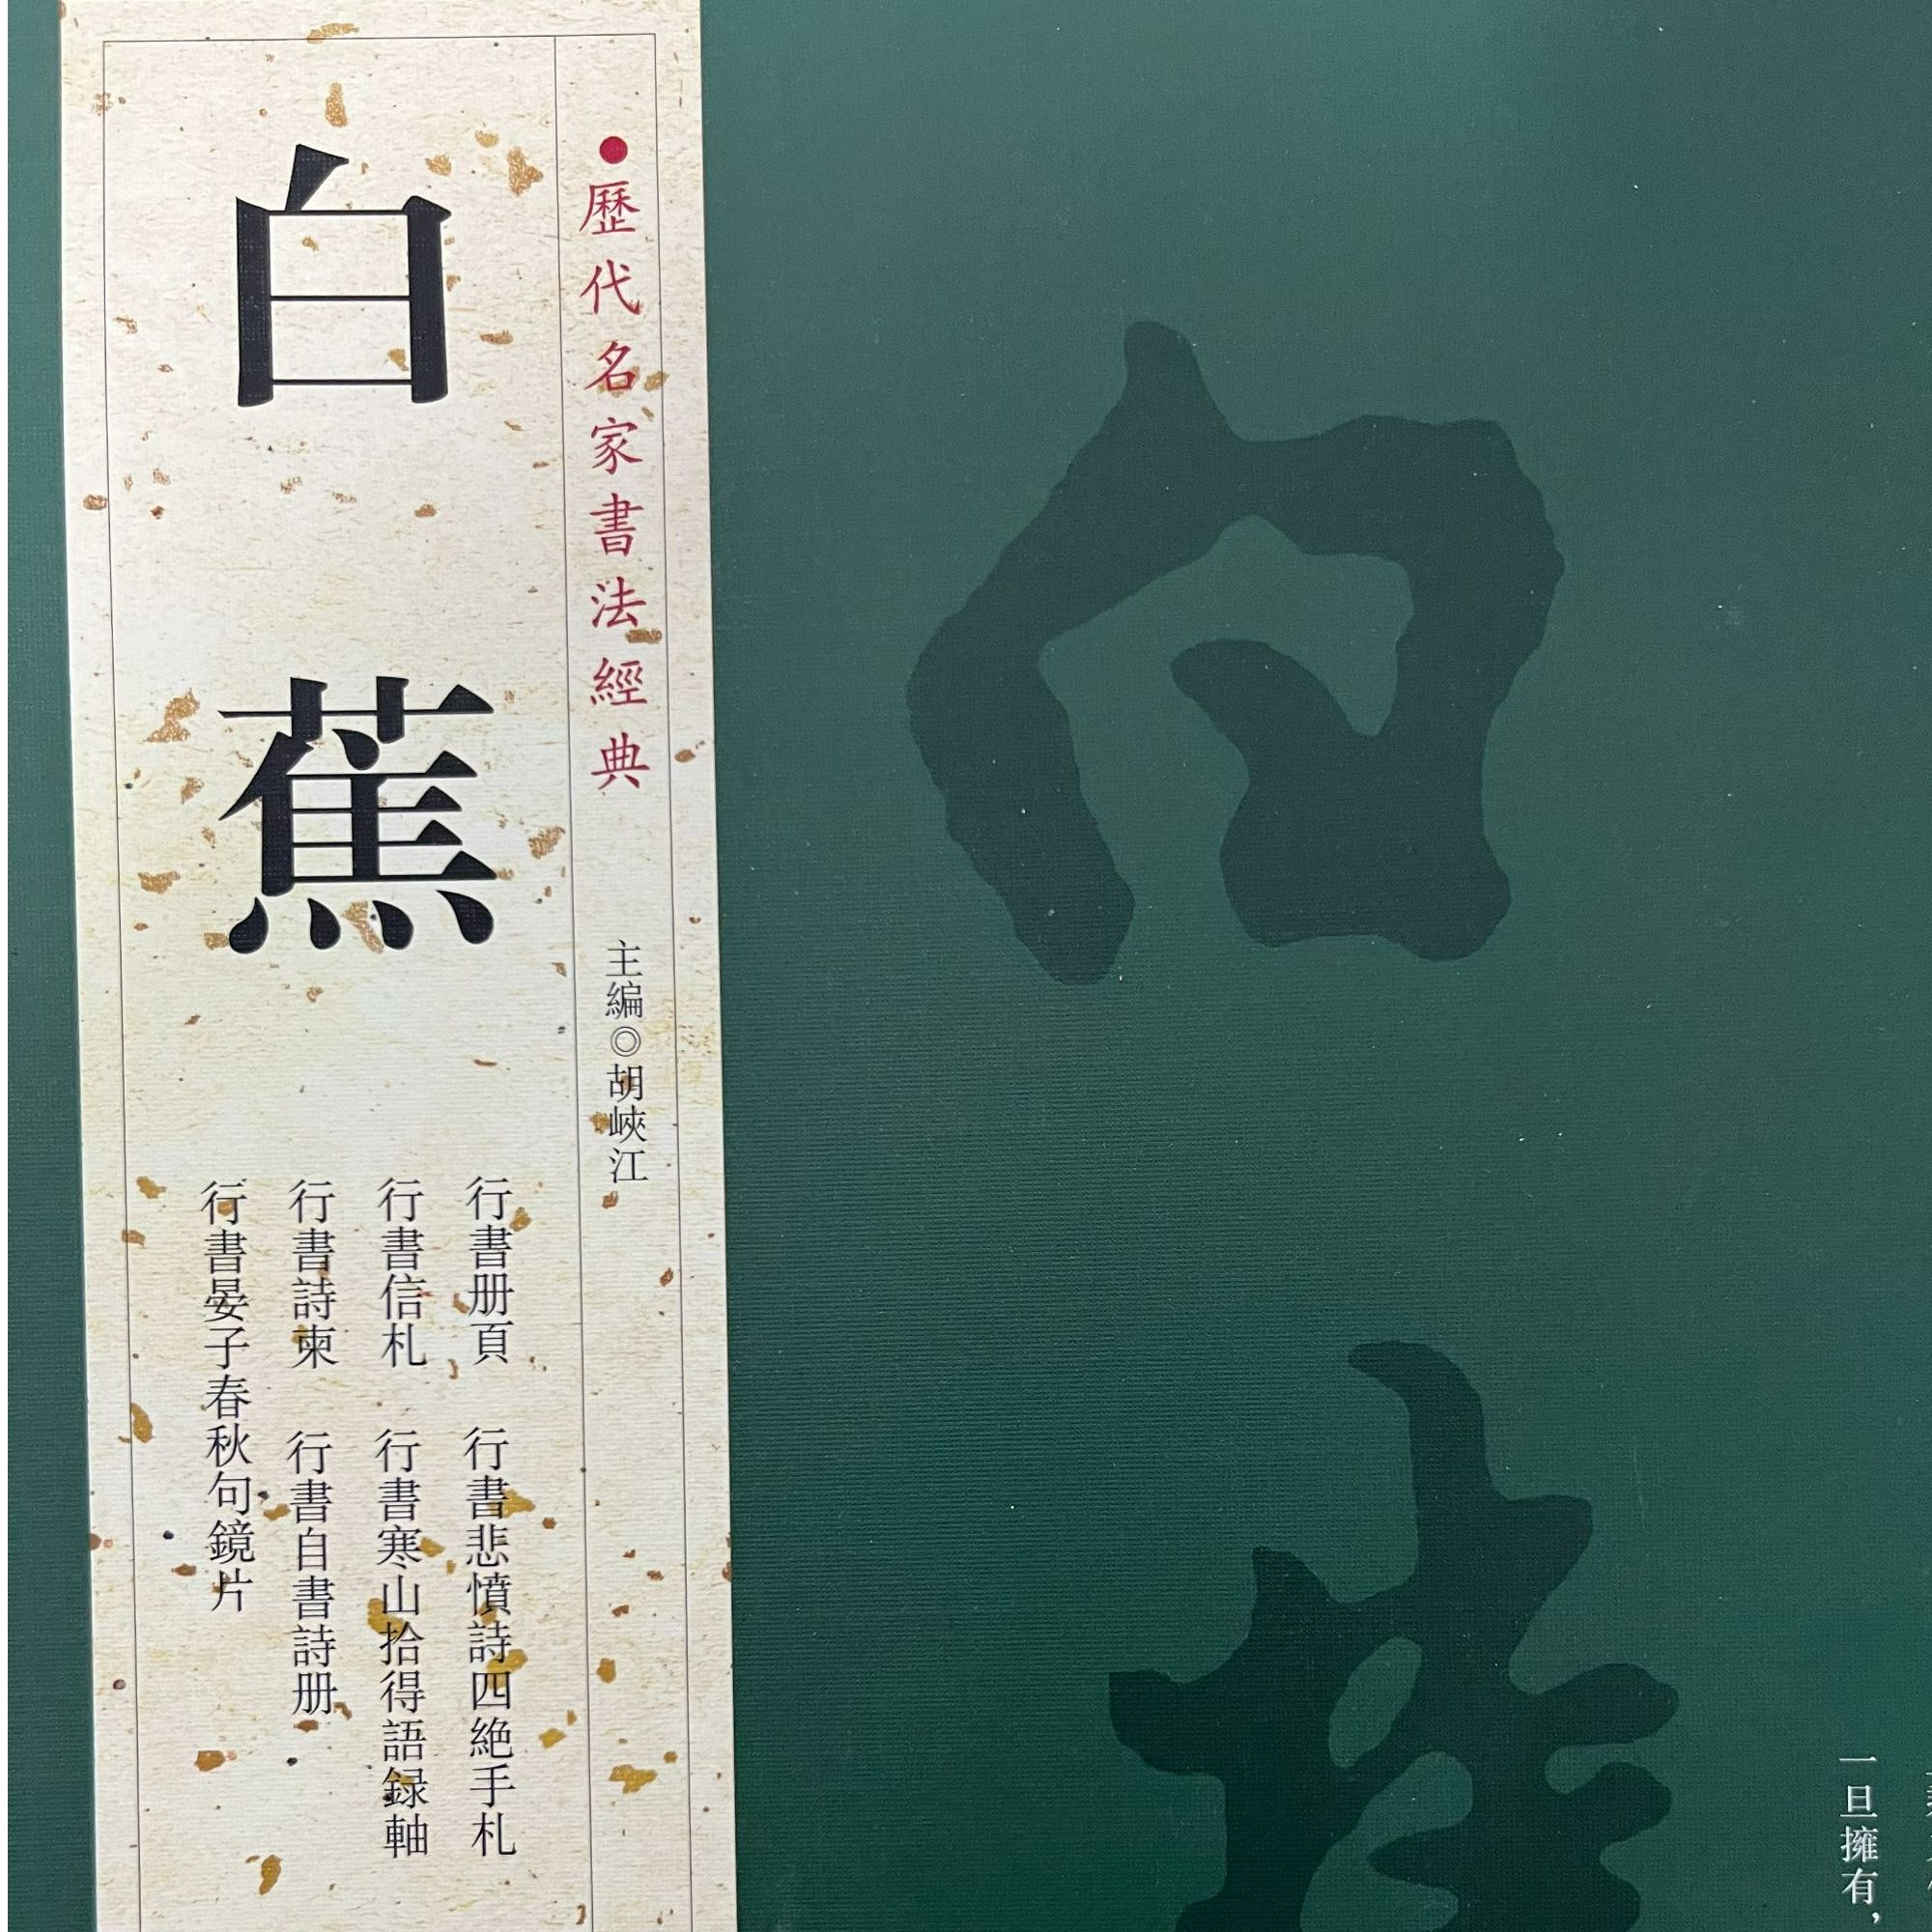 歷代名家書法經典
主編◎胡峽江
白蕉
行書册頁 行書悲憤詩四絶手札
行書信札 行書寒山拾得語録軸
行書詩柬 行書自書詩册
行書晏子春秋句鏡片
一旦擁有，